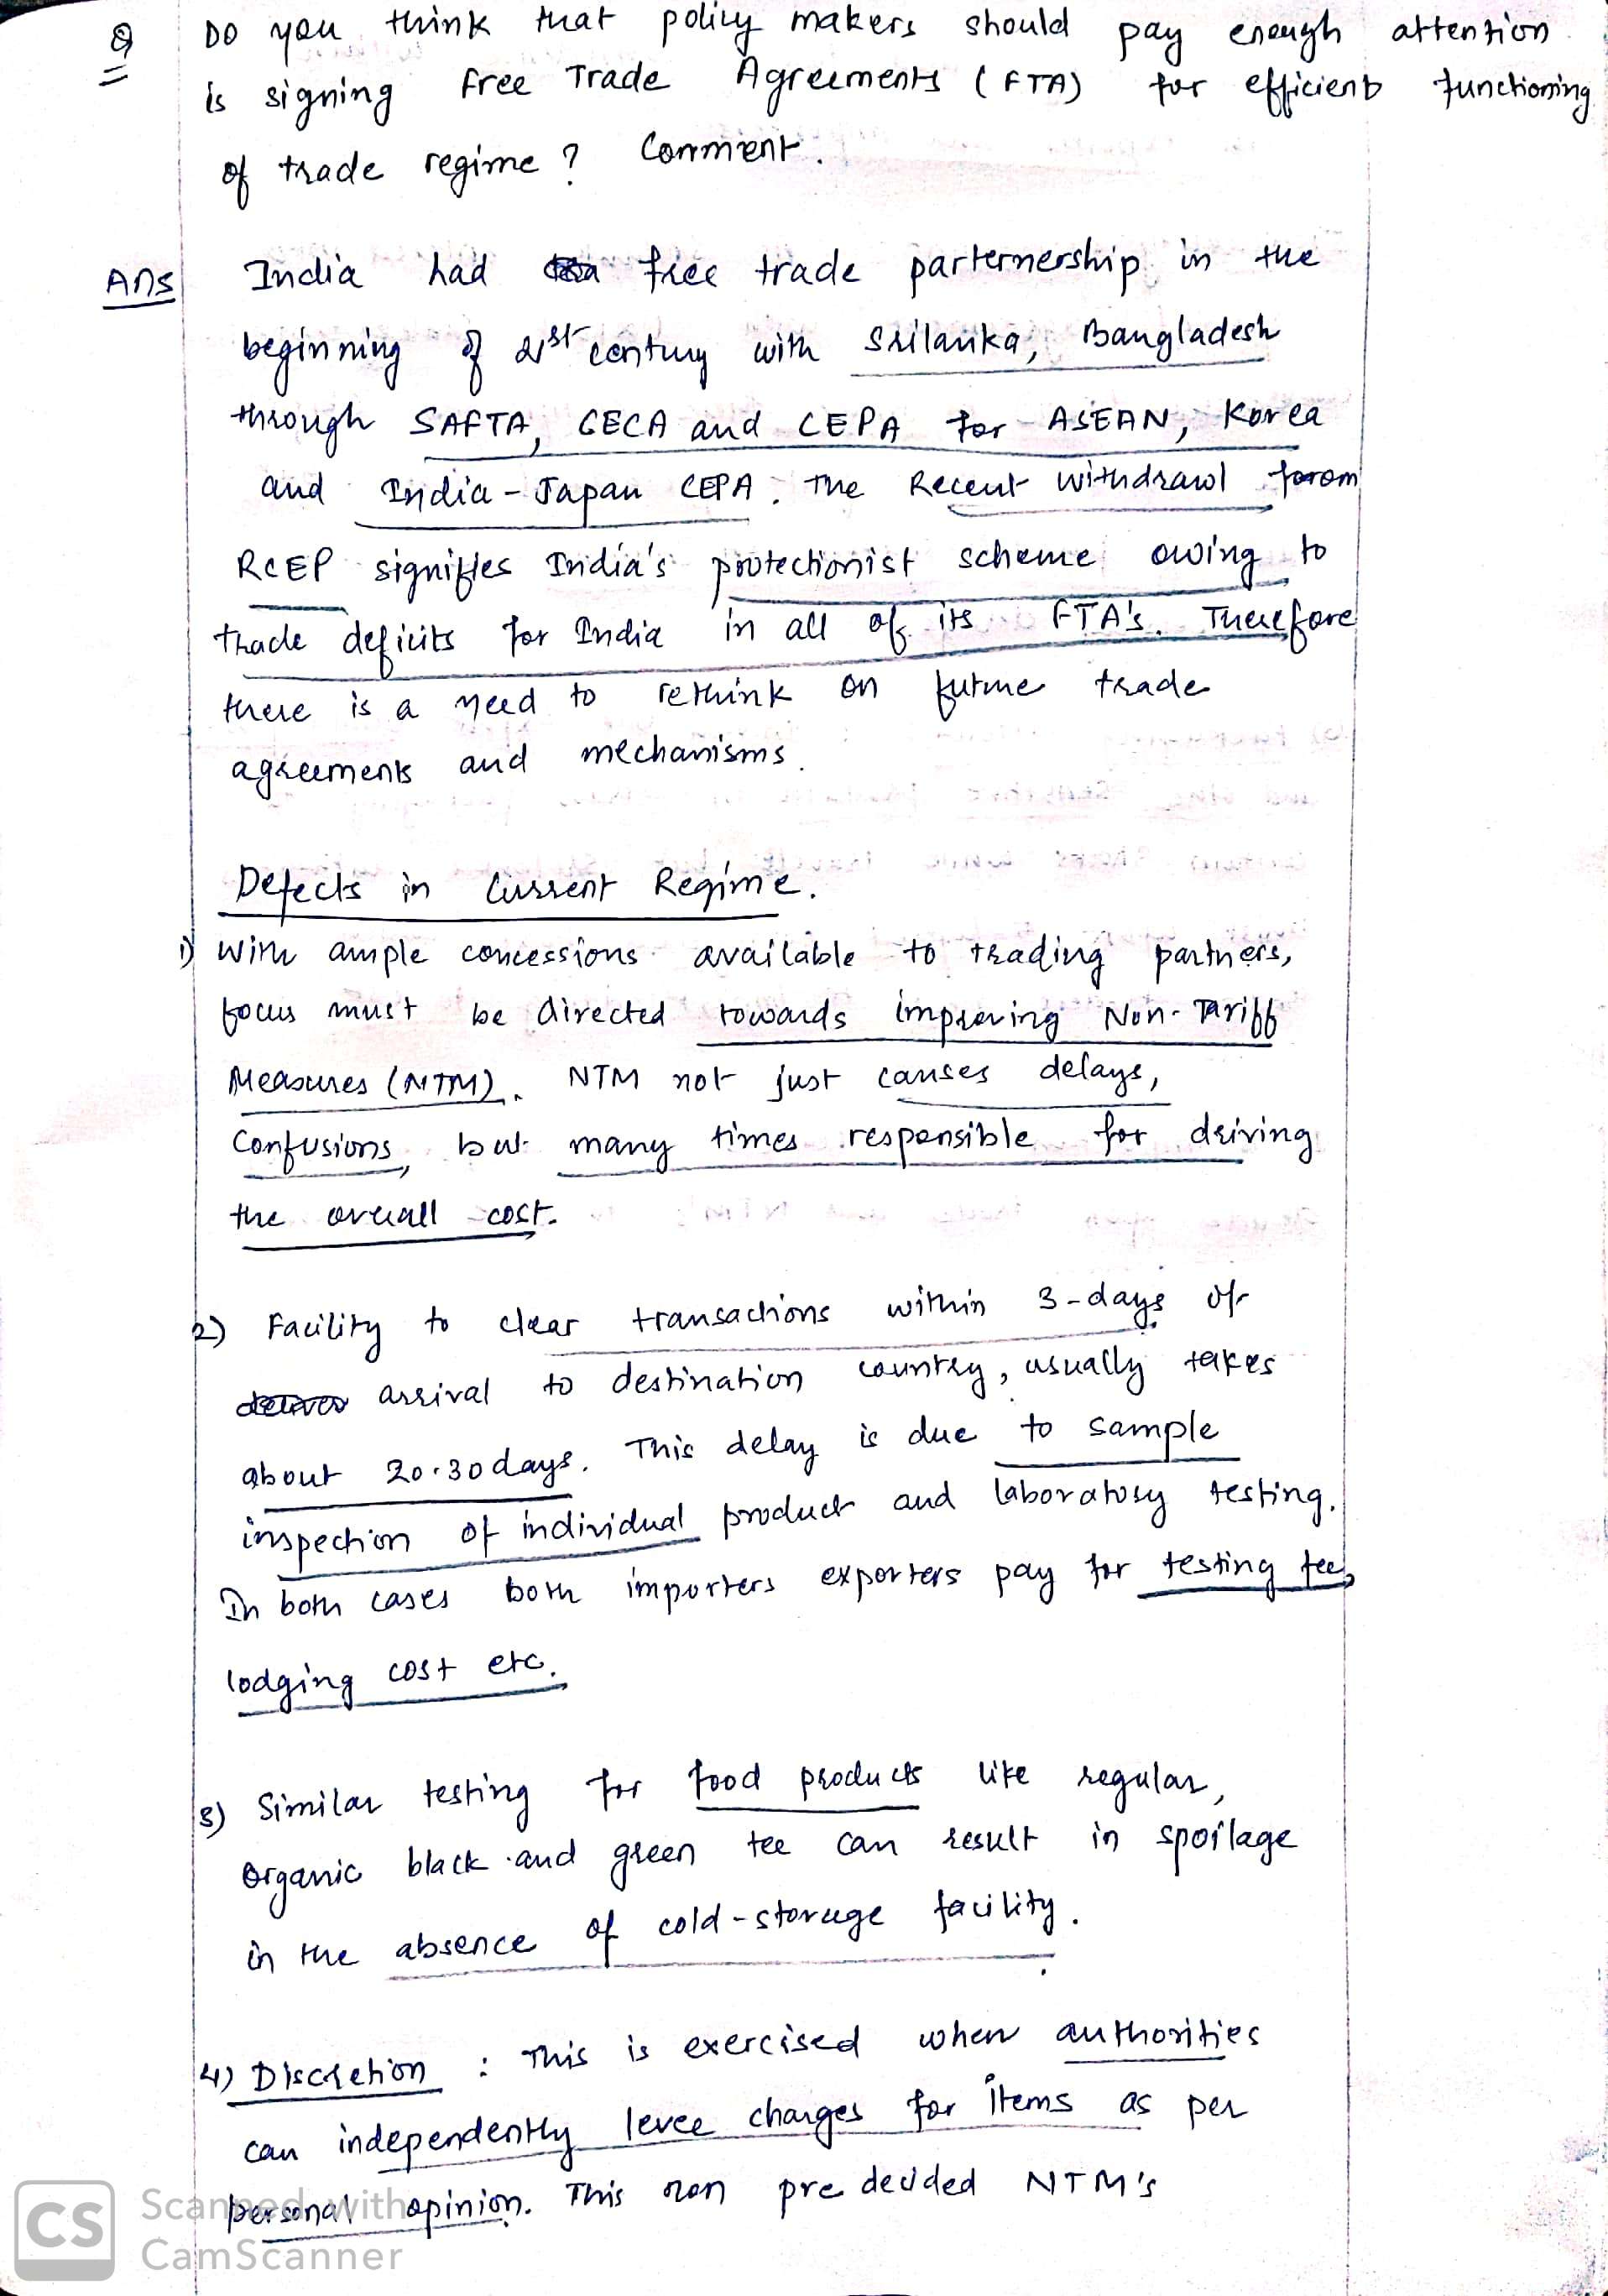 Q Do you think that policy makers should pay enough attention
is signing Free Trade Agreements (FTA) for efficient functioning
of trade regime? Comment.
Ans India had free trade parternership in the
beginning of 21st century with Srilanka, Bangladesh
through SAFTA, CECA and CEPA for ASEAN, Korea
and India-Japan CEPA. The Recent withdrawl forom
RCEP signifies India's protectionist scheme owing to
trade deficits for India in all of its FTA's. Therefore
there is a need to rethink on future trade
agreements and mechanisms.
Defects in Current Regime.
1) With ample concessions available to trading partners,
focus must be directed towards improving Non-Tariff
Measures (NTM). NTM not just causes delays,
confusions, but many times responsible for driving
the overall cost.
2) Facility to clear transactions within 3-days of
arrival to destination country, usually takes
about 20-30 days. This delay is due to sample
inspection of individual product and laboratory testing.
In both cases both importers exporters pay for testing fees,
lodging cost etc.
3) Similar testing for food products like regular,
organic black and green tee can result in spoilage
in the absence of cold-storage facility.
4) Discretion : This is exercised when authorities
can independently levee charges for items as per
personal opinion. This non pre decided NTM's
CS Scanned with
CamScanner